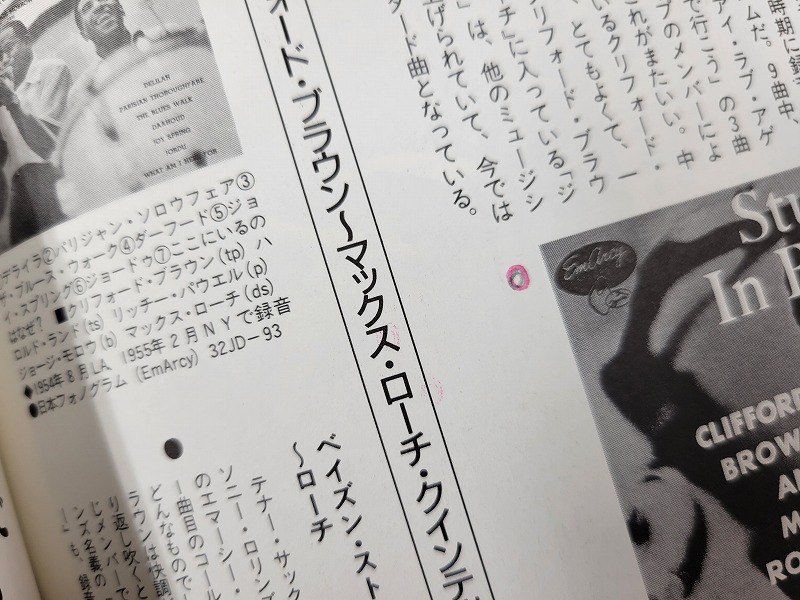 時期に録
ムだ。9曲中、
アイ・ラブ・アゲ
で行こう」の3曲
プのメンバーによ
これがまたいい。中
いるクリフォード・
、とてもよくて、一
クリフォード・ブラウ
ーチ」に入っている「ジ
」は、他のミュージシ
上げられていて、今では
ダード曲となっている。
ォード・ブラウン〜マックス・ローチ・クインテ
DELILAH
PARISIAN THOROUGHFARE
THE BLUES WALK
DAAHOUD
JOY SPRING
JORDU
WHAT AM I HERE FOR
デライラ②パリジャン・ソロウフェア③
ザ・ブルース・ウォーク④ダーフード⑤ジョ
イ・スプリング⑥ジョードゥ⑦ここにいるの
はなぜ? ■クリフォード・ブラウン(tp) ハ
ロルド・ランド(ts) リッチー・パウエル(p)
ジョージ・モロウ(b) マックス・ローチ(ds)
◆1954年8月LA 1955年2月NYで録音
●日本フォノグラム (EmArcy) 32JD−93
EmArcy
In
CLIFFOR
BROW
RO
ベイズン・スト
〜ローチ
テナー・サック
ソニー・ロリンズ
のエマーシー・
ー曲目のコール
どんなもので
ラウンは快調
り返し吹くと
じメンバーで
ンズ名義の